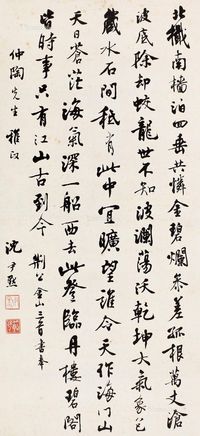 北檝南檣泊四垂共憐金碧爛參差孤根萬丈滄
波底除却蛟龍世不知波瀾蕩沃乾坤大氣象包
藏水石間秪有此中宜曠望誰令天作海門山
天日蒼茫海氣深一船西去此登臨丹樓碧閣
皆時事只有江山古到今 荆公金山三首書奉
仲陶先生雅政 沈尹默